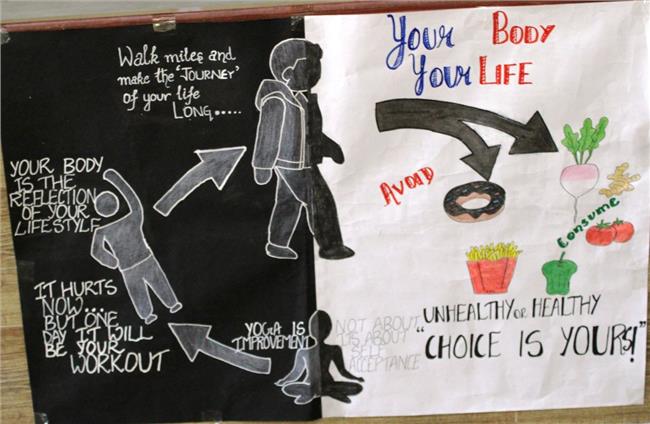 Walk miles and
make the 'JOURNEY'
of your life
LONG.....
YOUR BODY
IS THE
REFLECTION
OF YOUR
LIFESTYLE
IT HURTS
NOW...
BUT ONE
DAY IT WILL
BE YOUR
WORKOUT
YOGA IS
IMPROVEMENT
NOT ABOUT
ITS ABOUT
SELF
ACCEPTANCE
YOUR BODY
YOUR LIFE
AVOID
Consume
UNHEALTHY or HEALTHY
"CHOICE IS YOURS!"